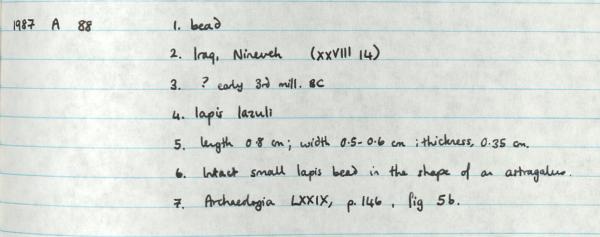 1987 A 88 1. bead
2. Iraq, Nineveh (XXVIII 14)
3. ? early 3rd mill. BC
4. lapis lazuli
5. length 0.8 cm; width 0.5-0.6 cm; thickness, 0.35 cm.
6. Intact small lapis bead in the shape of an astragalus.
7. Archaeologia LXXIX, p. 146, fig 5b.